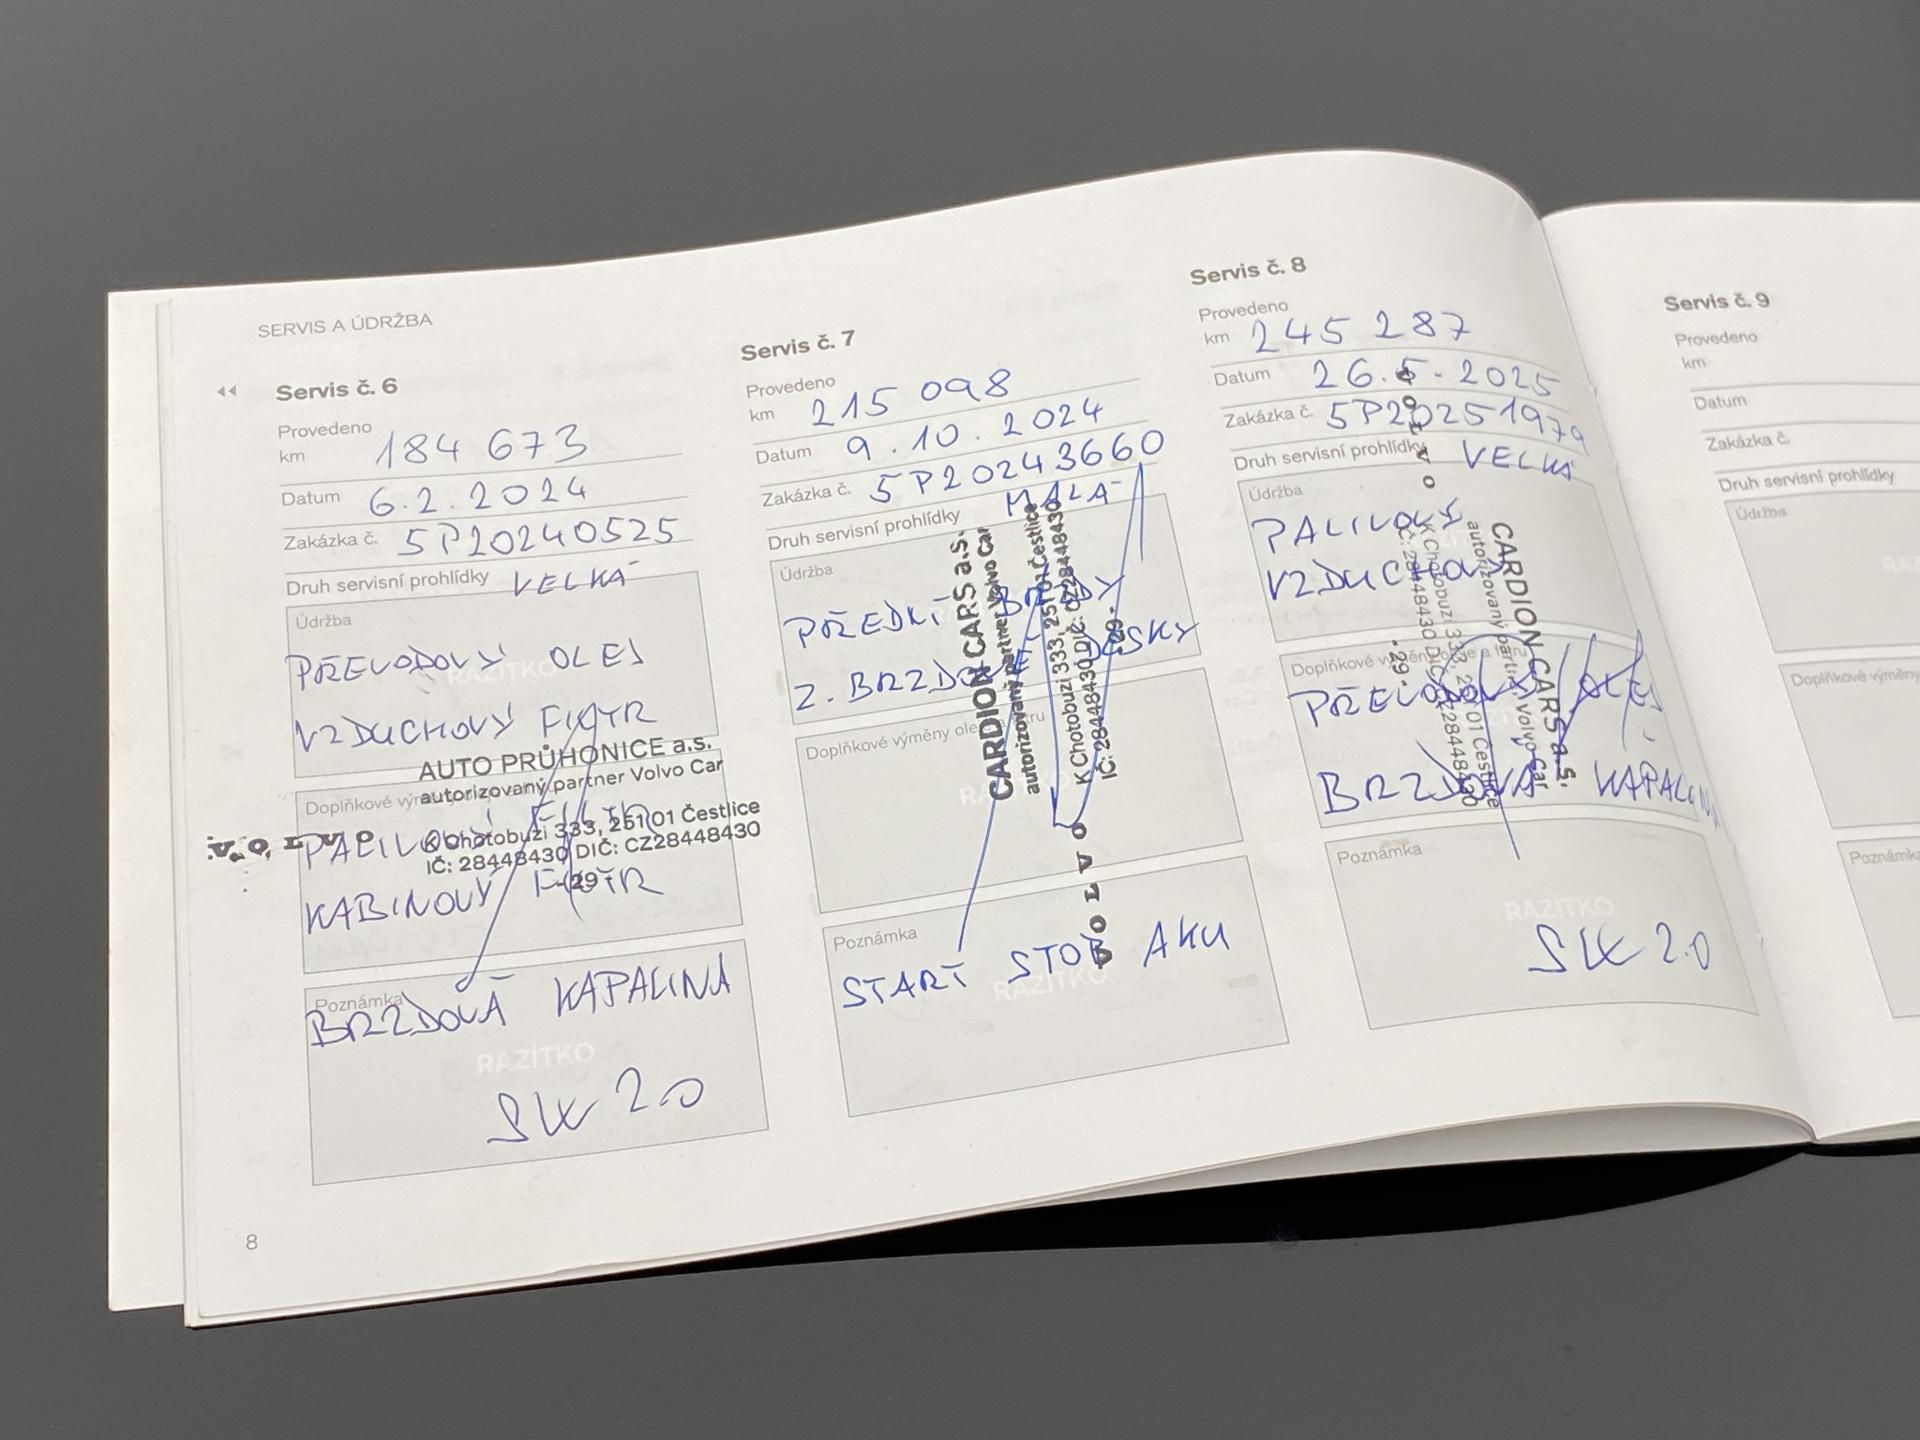 SERVIS A ÚDRŽBA
Servis č. 6
Provedeno
km 184 673
Datum 6.2.2024
Zakázka č. 5P20240525
Druh servisní prohlídky VELKÁ
Údržba
PŘEVODOVÝ OLEJ
VZDUCHOVÝ FILTR
RAZÍTKO
AUTO PRŮHONICE a.s.
autorizovaný partner Volvo Car
K Chotobuzi 333, 251 01 Čestlice
IČ: 28448430 DIČ: CZ28448430
- 29 -
VOLVO
Doplňkové
PALIVOVÝ FILTR
KABINOVÝ FILTR
Poznámka
BRZDOVÁ KAPALINA
RAZÍTKO
SW 2.0
8
Servis č. 7
Provedeno
km 215 098
Datum 9.10.2024
Zakázka č. 5P20243660
Druh servisní prohlídky MALÁ
Údržba
PŘEDNÍ BRZDY
Z. BRZDOVÉ DESKY
CARDION CARS a.s.
autorizovaný partner Volvo Car
K Chotobuzi 333, 251 01 Čestlice
IČ: 28448430 DIČ: CZ28448430
- 29 -
VOLVO
Doplňkové výměny
Poznámka
START STOP AKU
RAZÍTKO
Servis č. 8
Provedeno
km 245 287
Datum 26.5.2025
Zakázka č. 5P20251979
Druh servisní prohlídky VELKÁ
Údržba
PALIVOVÝ
VZDUCHOVÝ
VOLVO
CARDION CARS a.s.
autorizovaný partner Volvo Car
K Chotobuzi 333, 251 01 Čestlice
IČ: 28448430 DIČ: CZ28448430
- 29 -
Doplňkové výměny
PŘEVODOVÝ OLEJ
BRZDOVÁ KAPALINA
Poznámka
RAZÍTKO
SW 2.0
Servis č. 9
Provedeno
km
Datum
Zakázka č.
Druh servisní prohlídky
Údržba
Doplňkové výměny
Poznámka